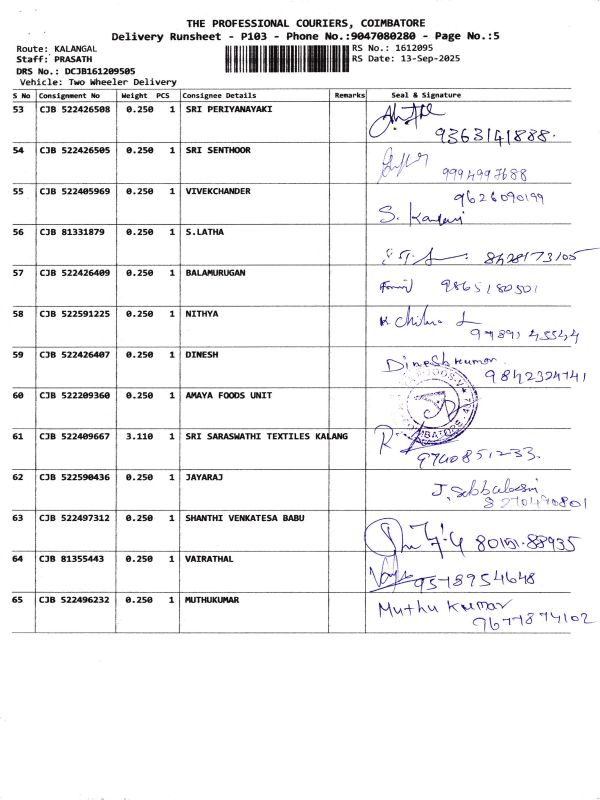 THE PROFESSIONAL COURIERS, COIMBATORE
Delivery Runsheet - P103 - Phone No.:9047080280 - Page No.:5
Route: KALANGAL RS No.: 1612095
Staff: PRASATH RS Date: 13-Sep-2025
DRS No.: DCJB161209505
Vehicle: Two Wheeler Delivery
S No Consignment No Weight PCS Consignee Details Remarks Seal & Signature
53 CJB 522426508 0.250 1 SRI PERIYANAYAKI
9363141888.
54 CJB 522426505 0.250 1 SRI SENTHOOR
9994997688
55 CJB 522405969 0.250 1 VIVEKCHANDER 9626090199
S.
56 CJB 81331879 0.250 1 S.LATHA
8428173105
57 CJB 522426409 0.250 1 BALAMURUGAN
9865180501
58 CJB 522591225 0.250 1 NITHYA
59 CJB 522426407 0.250 1 DINESH Dineshkumar
9842324741
60 CJB 522209360 0.250 1 AMAYA FOODS UNIT
61 CJB 522409667 3.110 1 SRI SARASWATHI TEXTILES KALANG
62 CJB 522590436 0.250 1 JAYARAJ
63 CJB 522497312 0.250 1 SHANTHI VENKATESA BABU
64 CJB 81355443 0.250 1 VAIRATHAL
9578954648
65 CJB 522496232 0.250 1 MUTHUKUMAR Muthu Kumar
9677874102